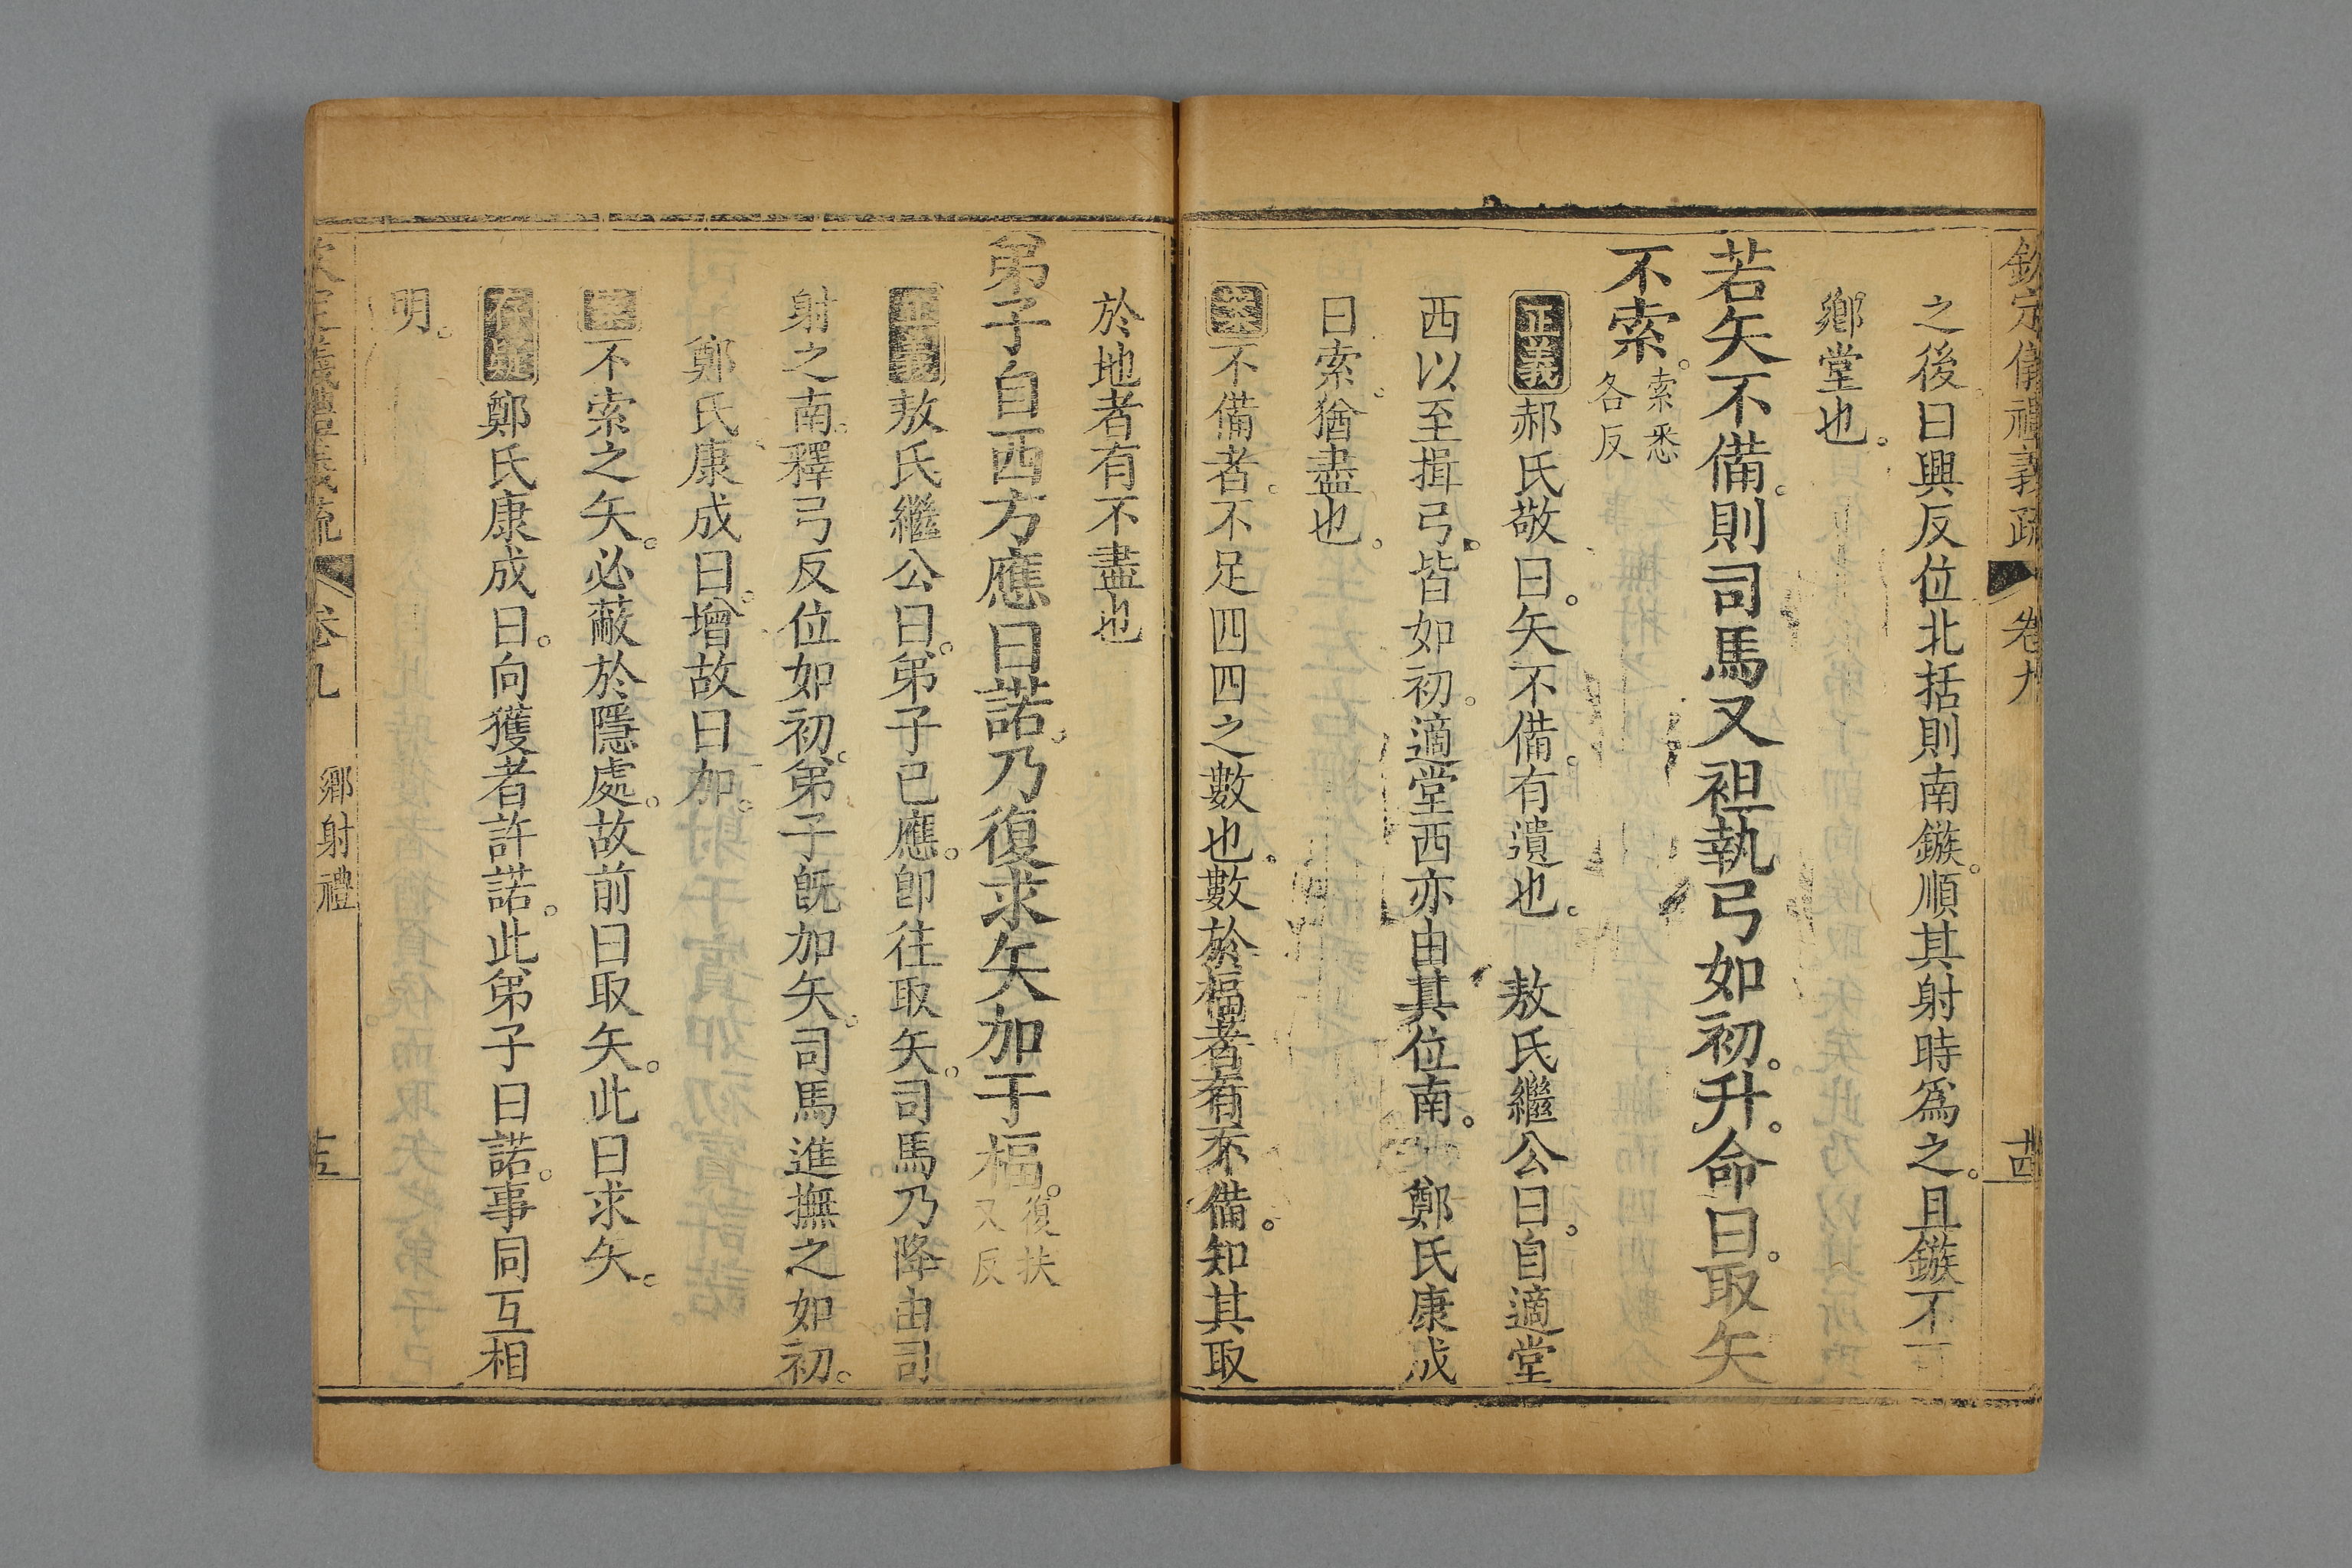 欽定儀禮義疏 卷九 十四
之後曰興反位北括則南鏃。順其射時爲之。且鏃不可
鄉堂也。
若矢不備。則司馬又袒執弓如初。升。命曰。取矢
不索。索悉各反
正義 郝氏敬曰。矢不備。有遺也。 敖氏繼公曰。自適堂
西以至揖弓。皆如初。適堂西亦由其位南。 鄭氏康成
曰索。猶盡也。
案 不備者。不足四四之數也。數於楅者有不備。知其取
於地者有不盡也
弟子自西方應曰諾。乃復求矢加于楅。復扶又反
正義 敖氏繼公曰。弟子已應。卽往取矢。司馬乃降由司
射之南。釋弓反位如初。弟子旣加矢。司馬進撫之如初。
鄭氏康成曰。增故曰加。
案 不索之矢。必蔽於隱處。故前曰取矢。此曰求矢。
存疑 鄭氏康成曰。向獲者許諾。此弟子曰諾。事同互相
明。
欽定儀禮義疏 卷九 鄉射禮 十五